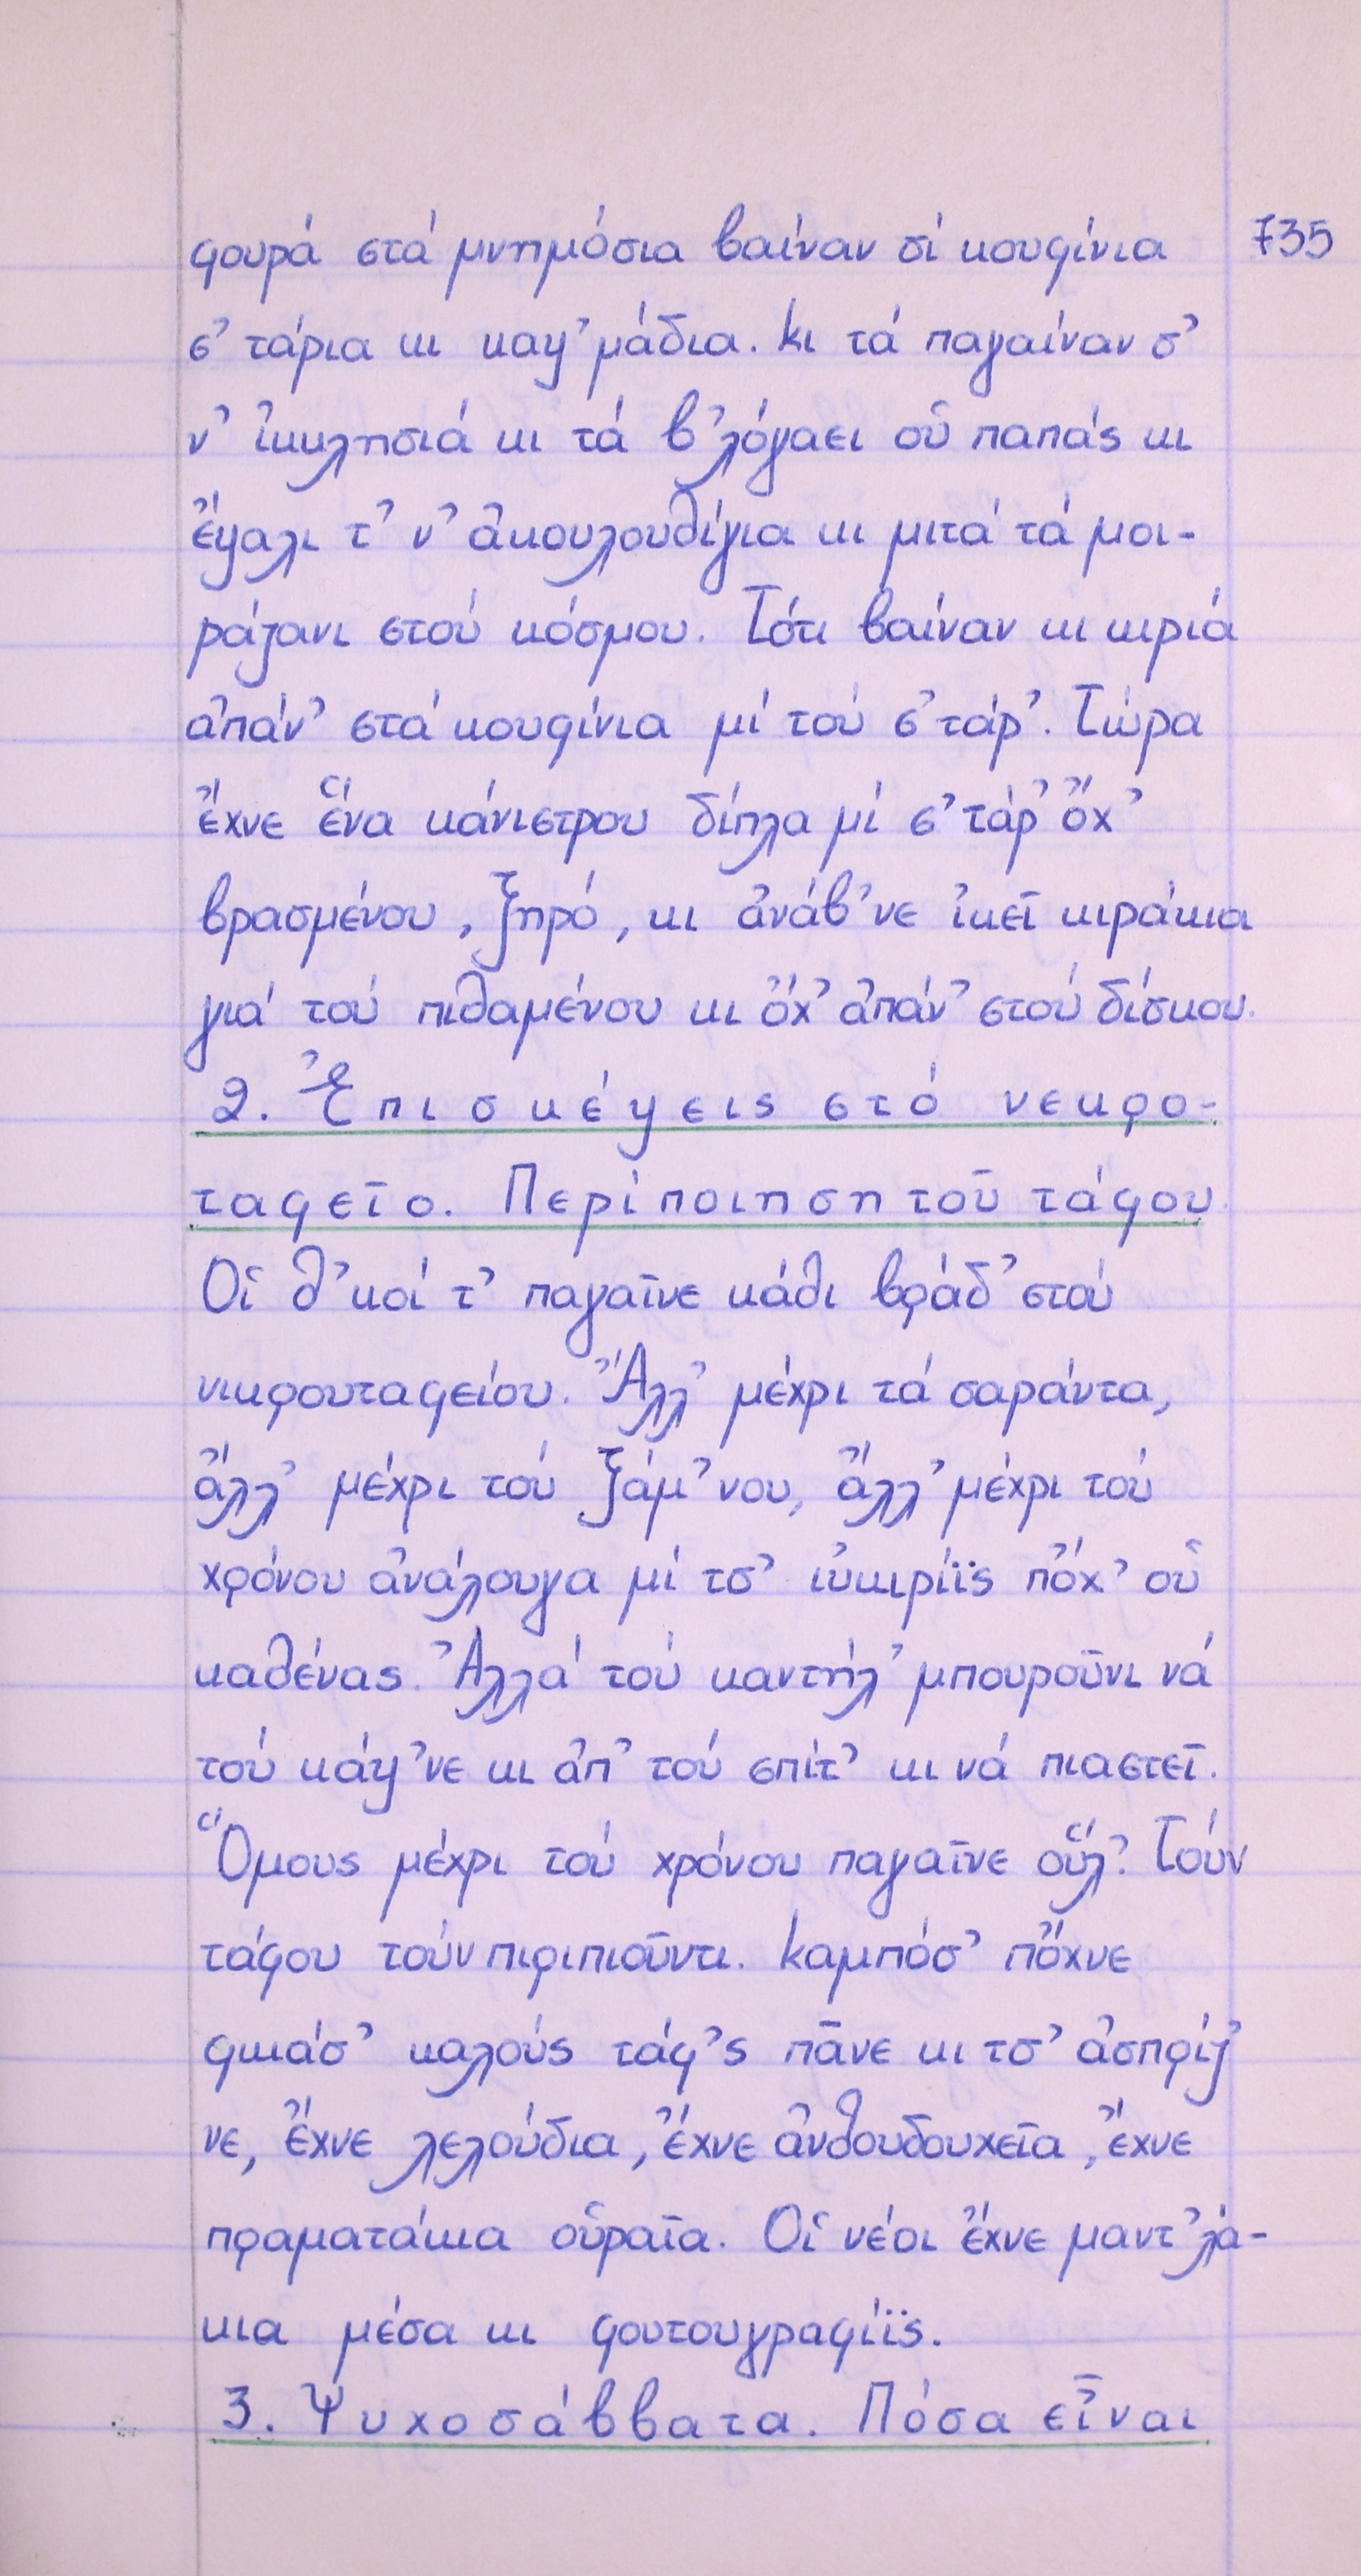 φουρά στά μνημόσια βαίναν σί κουφίνια 735
σ' τάρια κι καψ' μάδια. Κι τά παγαίναν σ'
ν' ἰκκλησιά κι τά β'λόγαει οὑ παπάς κι
ἔψαλι τ' ν' ἀκουλουθίγια κι μιτά τά μοι-
ράζανι στού κόσμου. Τότι βαίναν κι κιριά
ἀπάν' στά κουφίνια μί τού σ'τάρ'. Τώρα
ἔχνε ἕνα κάνιστρου δίπλα μί σ'τάρ' ὄχ'
βρασμένου, ξηρό, κι ἀνάβ'νε ἰκεῖ κιράκια
γιά τού πιθαμένου κι ὄχ' ἀπάν' στού δίσκου.
2. Ἐπισκέψεις στό νεκρο-
ταφεῖο. Περίποιηση τοῦ τάφου
Οἱ δ'κοί τ' παγαῖνε κάθι βράδ' στού
νικρουταφείου. Ἄλλ' μέχρι τά σαράντα,
ἄλλ' μέχρι τού ξάμ'νου, ἄλλ' μέχρι τού
χρόνου ἀνάλουγα μί τσ' ἰὐκιρίϊς πὄχ' οὑ
καθένας. Ἀλλά τού καντήλ' μπουροῦνι νά
τού κάψ'νε κι ἀπ' τού σπίτ' κι νά πιαστεῖ.
Ὅμους μέχρι τού χρόνου παγαῖνε οὕλ'. Τούν
τάφου τούν πιριπιοῦντι. Καμπόσ' πὄχνε
φκιάσ' καλούς τάφ'ς πᾶνε κι τσ' ἀσπρίζ'
νε, ἔχνε λελούδια, ἔχνε ἀνθουδουχεῖα, ἔχνε
πραματάκια οὑραῖα. Οἱ νέοι ἔχνε μαντ'λά-
κια μέσα κι φουτουγραφίϊς.
3. Ψυχοσάββατα. Πόσα εἶναι